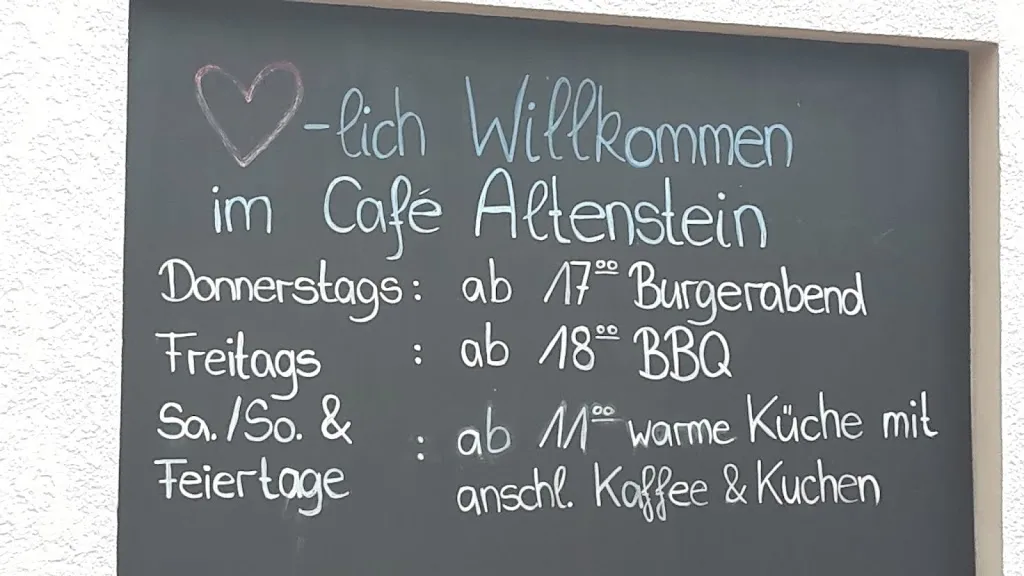 ♡-lich Willkommen
im Café Altenstein
Donnerstags: ab 17⁰⁰ Burgerabend
Freitags : ab 18⁰⁰ BBQ
Sa./So. & : ab 11⁰⁰ warme Küche mit
Feiertage anschl. Kaffee & Kuchen